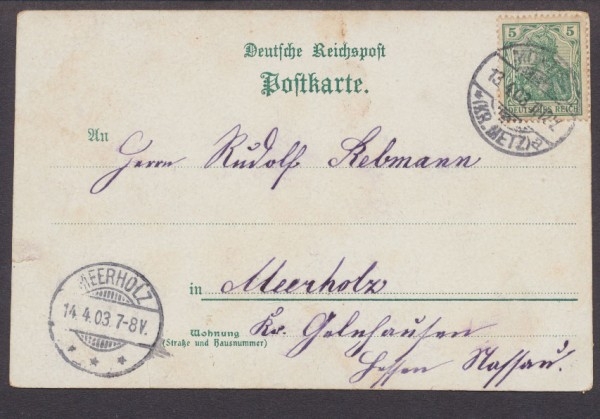 Deutsche Reichspost
Postkarte.
5 5
DEUTSCHES REICH
13.4.03.
*(KR. METZ)a
An
Herrn Rudolf Rebmann
in Meerholz
Wohnung
(Straße und Hausnummer)
Kr. Gelnhausen
Hessen Nassau.
MEERHOLZ
14.4.03. 7-8V.
* * *